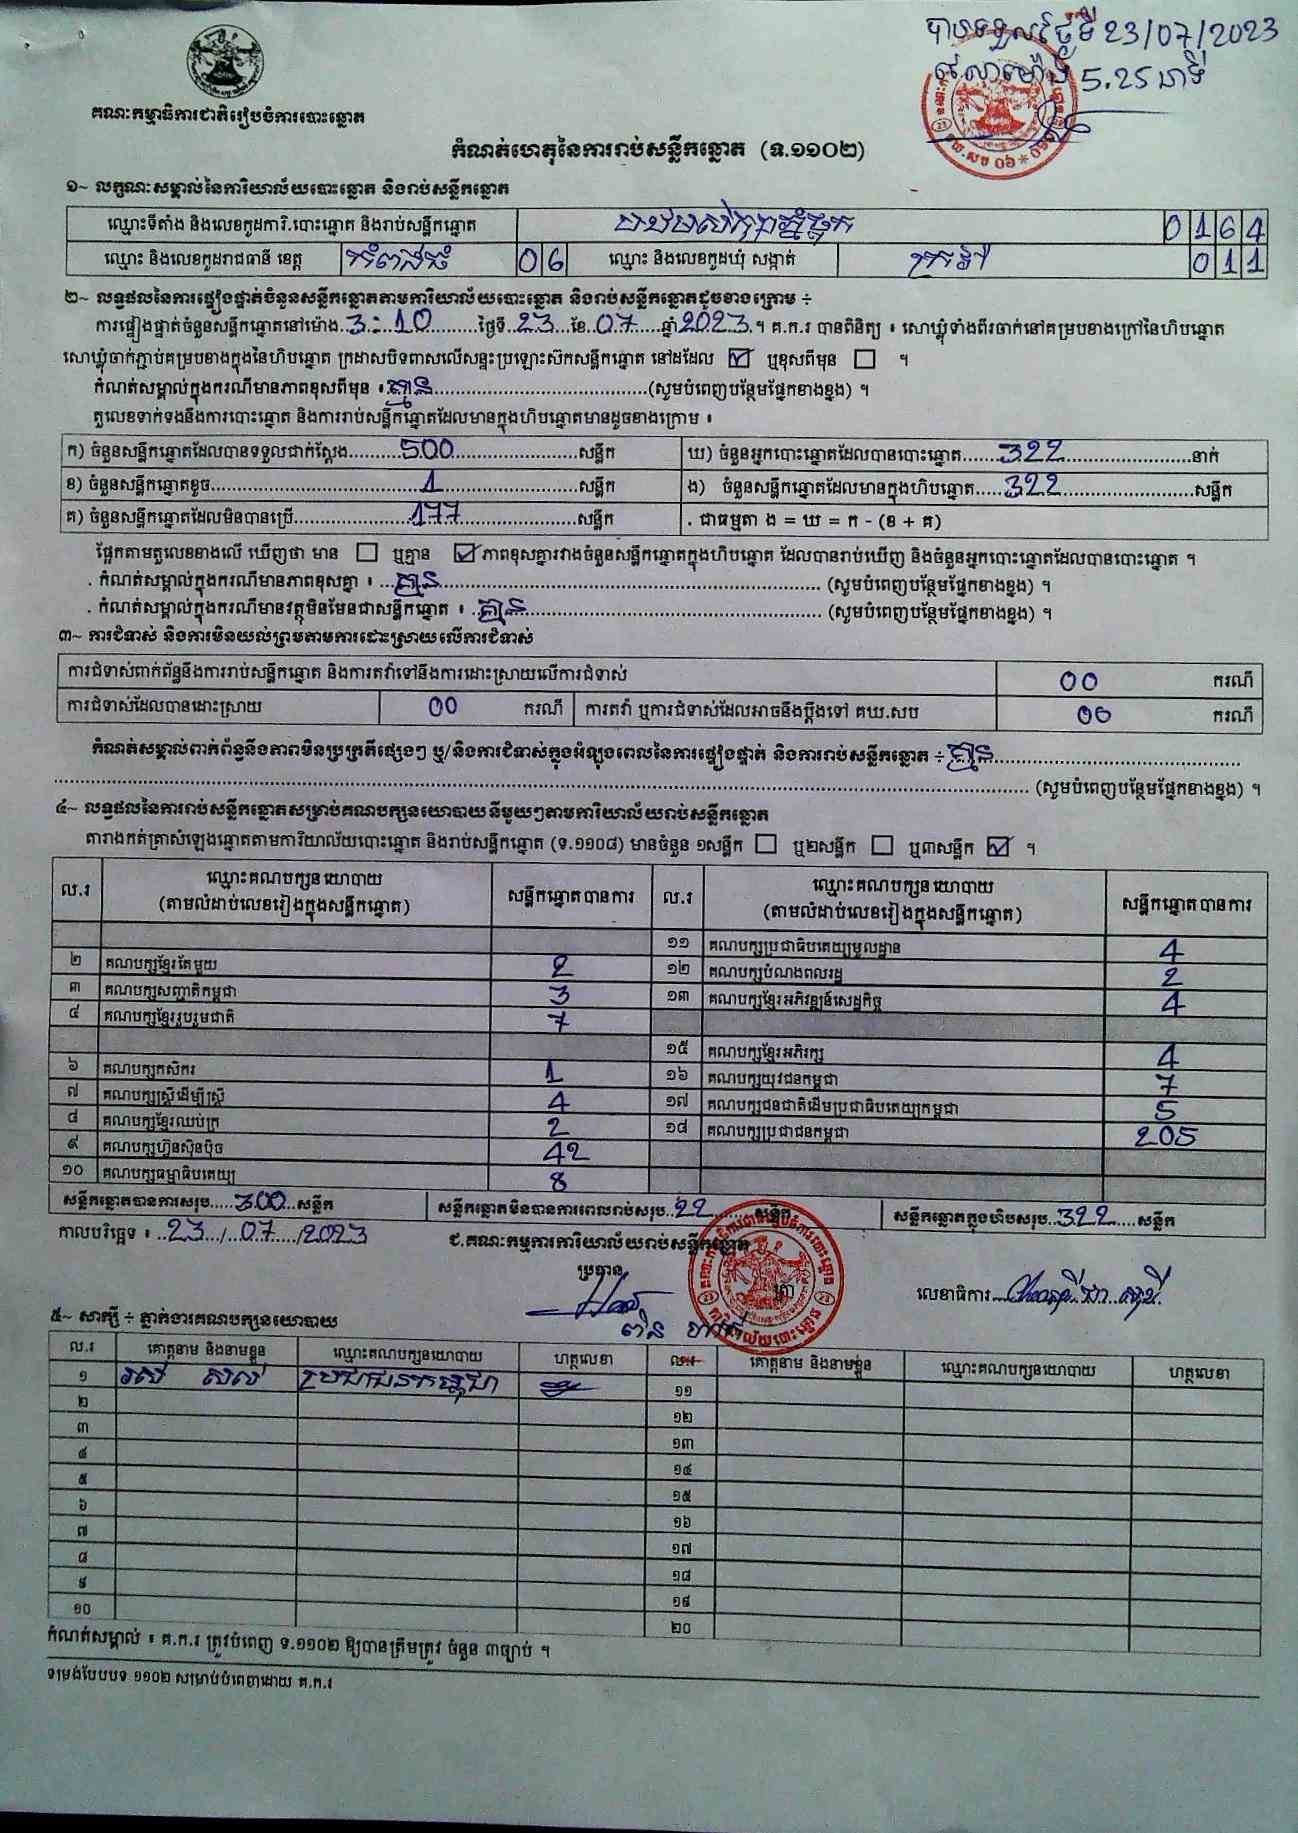 បានទទួលថ្ងៃទី 23/07/2023
5.25 នាទី
គណៈកម្មាធិការជាតិរៀបចំការបោះឆ្នោត
កំណត់ហេតុនៃការរាប់សន្លឹកឆ្នោត (ទ.១១០២)
១~ លក្ខណៈសម្គាល់នៃការិយាល័យបោះឆ្នោត និងរាប់សន្លឹកឆ្នោត
ឈ្មោះទីតាំង និងលេខកូដការិ.បោះឆ្នោត និងរាប់សន្លឹកឆ្នោត 0164
ឈ្មោះ និងលេខកូដរាជធានី ខេត្ត កំពង់ធំ 06 ឈ្មោះ និងលេខកូដឃុំ សង្កាត់ 011
២~ លទ្ធផលនៃការផ្ទៀងផ្ទាត់ចំនួនសន្លឹកឆ្នោតតាមការិយាល័យបោះឆ្នោត និងរាប់សន្លឹកឆ្នោតដូចខាងក្រោម ÷
ការផ្ទៀងផ្ទាត់ចំនួនសន្លឹកឆ្នោតនៅម៉ោង..3:10.......ថ្ងៃទី..23..ខែ..07....ឆ្នាំ2023.។ គ.ក.រ បានពិនិត្យ ៖ សោឃ្លុំទាំងពីរចាក់នៅគម្របខាងក្រៅនៃហិបឆ្នោត
សោឃ្លុំចាក់ភ្ជាប់គម្របខាងក្នុងនៃហិបឆ្នោត ក្រដាសបិទពាសលើសន្ទះប្រឡោះស៊កសន្លឹកឆ្នោត នៅដដែល ☑ ឬខុសពីមុន ☐ ។
កំណត់សម្គាល់ក្នុងករណីមានភាពខុសពីមុន ៖ គ្មាន..............................(សូមបំពេញបន្ថែមផ្នែកខាងខ្នង) ។
តួលេខទាក់ទងនឹងការបោះឆ្នោត និងការរាប់សន្លឹកឆ្នោតដែលមានក្នុងហិបឆ្នោតមានដូចខាងក្រោម ៖
ក) ចំនួនសន្លឹកឆ្នោតដែលបានទទួលជាក់ស្តែង..........500....................សន្លឹក ឃ) ចំនួនអ្នកបោះឆ្នោតដែលបានបោះឆ្នោត.......322....................នាក់
ខ) ចំនួនសន្លឹកឆ្នោតខូច..............................1....................សន្លឹក ង) ចំនួនសន្លឹកឆ្នោតដែលមានក្នុងហិបឆ្នោត.....322....................សន្លឹក
គ) ចំនួនសន្លឹកឆ្នោតដែលមិនបានប្រើ..................177................សន្លឹក . ជាធម្មតា ង = ឃ = ក - (ខ + គ)
ផ្អែកតាមតួលេខខាងលើ ឃើញថា មាន ☐ ឬគ្មាន ☑ ភាពខុសគ្នារវាងចំនួនសន្លឹកឆ្នោតក្នុងហិបឆ្នោត ដែលបានរាប់ឃើញ និងចំនួនអ្នកបោះឆ្នោតដែលបានបោះឆ្នោត ។
. កំណត់សម្គាល់ក្នុងករណីមានភាពខុសគ្នា ៖ ...គ្មាន.................................................. (សូមបំពេញបន្ថែមផ្នែកខាងខ្នង) ។
. កំណត់សម្គាល់ក្នុងករណីមានវត្ថុមិនមែនជាសន្លឹកឆ្នោត ៖ ..គ្មាន.......................................... (សូមបំពេញបន្ថែមផ្នែកខាងខ្នង) ។
៣~ ការជំទាស់ និងការមិនយល់ព្រមតាមការដោះស្រាយលើការជំទាស់
ការជំទាស់ពាក់ព័ន្ធនឹងការរាប់សន្លឹកឆ្នោត និងការតវ៉ាទៅនឹងការដោះស្រាយលើការជំទាស់ 00 ករណី
ការជំទាស់ដែលបានដោះស្រាយ 00 ករណី ការតវ៉ា ឬការជំទាស់ដែលអាចនឹងប្តឹងទៅ គឃ.សប 00 ករណី
កំណត់សម្គាល់ពាក់ព័ន្ធនឹងភាពមិនប្រក្រតីផ្សេងៗ ឬ/និងការជំទាស់ក្នុងអំឡុងពេលនៃការផ្ទៀងផ្ទាត់ និងការរាប់សន្លឹកឆ្នោត ÷ គ្មាន..............................
.................................................. (សូមបំពេញបន្ថែមផ្នែកខាងខ្នង) ។
៤~ លទ្ធផលនៃការរាប់សន្លឹកឆ្នោតសម្រាប់គណបក្សនយោបាយនីមួយៗតាមការិយាល័យរាប់សន្លឹកឆ្នោត
តារាងកត់ត្រាសំឡេងឆ្នោតតាមការិយាល័យបោះឆ្នោត និងរាប់សន្លឹកឆ្នោត (ទ.១១០៨) មានចំនួន ១សន្លឹក ☐ ឬ២សន្លឹក ☐ ឬ៣សន្លឹក ☑ ។
ល.រ ឈ្មោះគណបក្សនយោបាយ (តាមលំដាប់លេខរៀងក្នុងសន្លឹកឆ្នោត) សន្លឹកឆ្នោតបានការ ល.រ ឈ្មោះគណបក្សនយោបាយ (តាមលំដាប់លេខរៀងក្នុងសន្លឹកឆ្នោត) សន្លឹកឆ្នោតបានការ
១១ គណបក្សប្រជាធិបតេយ្យមូលដ្ឋាន 4
២ គណបក្សខ្មែរតែមួយ 2 ១២ គណបក្សបំណងពលរដ្ឋ 2
៣ គណបក្សសញ្ជាតិកម្ពុជា 3 ១៣ គណបក្សខ្មែរអភិវឌ្ឍន៍សេដ្ឋកិច្ច 4
៤ គណបក្សខ្មែររួបរួមជាតិ 7
១៥ គណបក្សខ្មែរអភិរក្ស 4
៦ គណបក្សកសិករ 1 ១៦ គណបក្សយុវជនកម្ពុជា 7
៧ គណបក្សស្ត្រីដើម្បីស្ត្រី 4 ១៧ គណបក្សជនជាតិដើមប្រជាធិបតេយ្យកម្ពុជា 5
៨ គណបក្សខ្មែរឈប់ក្រ 2 ១៨ គណបក្សប្រជាជនកម្ពុជា 205
៩ គណបក្សហ៊្វុនស៊ិនប៉ិច 42
១០ គណបក្សធម្មាធិបតេយ្យ 8
សន្លឹកឆ្នោតបានការសរុប.....300...សន្លឹក សន្លឹកឆ្នោតមិនបានការពេលរាប់សរុប..22.......សន្លឹក សន្លឹកឆ្នោតក្នុងហិបសរុប..322.....សន្លឹក
កាលបរិច្ឆេទ ៖ ..23../..07..../2023 ជ.គណៈកម្មការការិយាល័យរាប់សន្លឹកឆ្នោត
ប្រធាន
លេខាធិការ
៥~ សាក្សី ÷ ភ្នាក់ងារគណបក្សនយោបាយ
ល.រ គោត្តនាម និងនាមខ្លួន ឈ្មោះគណបក្សនយោបាយ ហត្ថលេខា ល.រ គោត្តនាម និងនាមខ្លួន ឈ្មោះគណបក្សនយោបាយ ហត្ថលេខា
១ ប្រជាជនកម្ពុជា ១១
២ ១២
៣ ១៣
៤ ១៤
៥ ១៥
៦ ១៦
៧ ១៧
៨ ១៨
៩ ១៩
១០ ២០
កំណត់សម្គាល់ ៖ គ.ក.រ ត្រូវបំពេញ ទ.១១០២ ឱ្យបានត្រឹមត្រូវ ចំនួន ៣ច្បាប់ ។
ទម្រង់បែបបទ ១១០២ សម្រាប់បំពេញដោយ គ.ក.រ